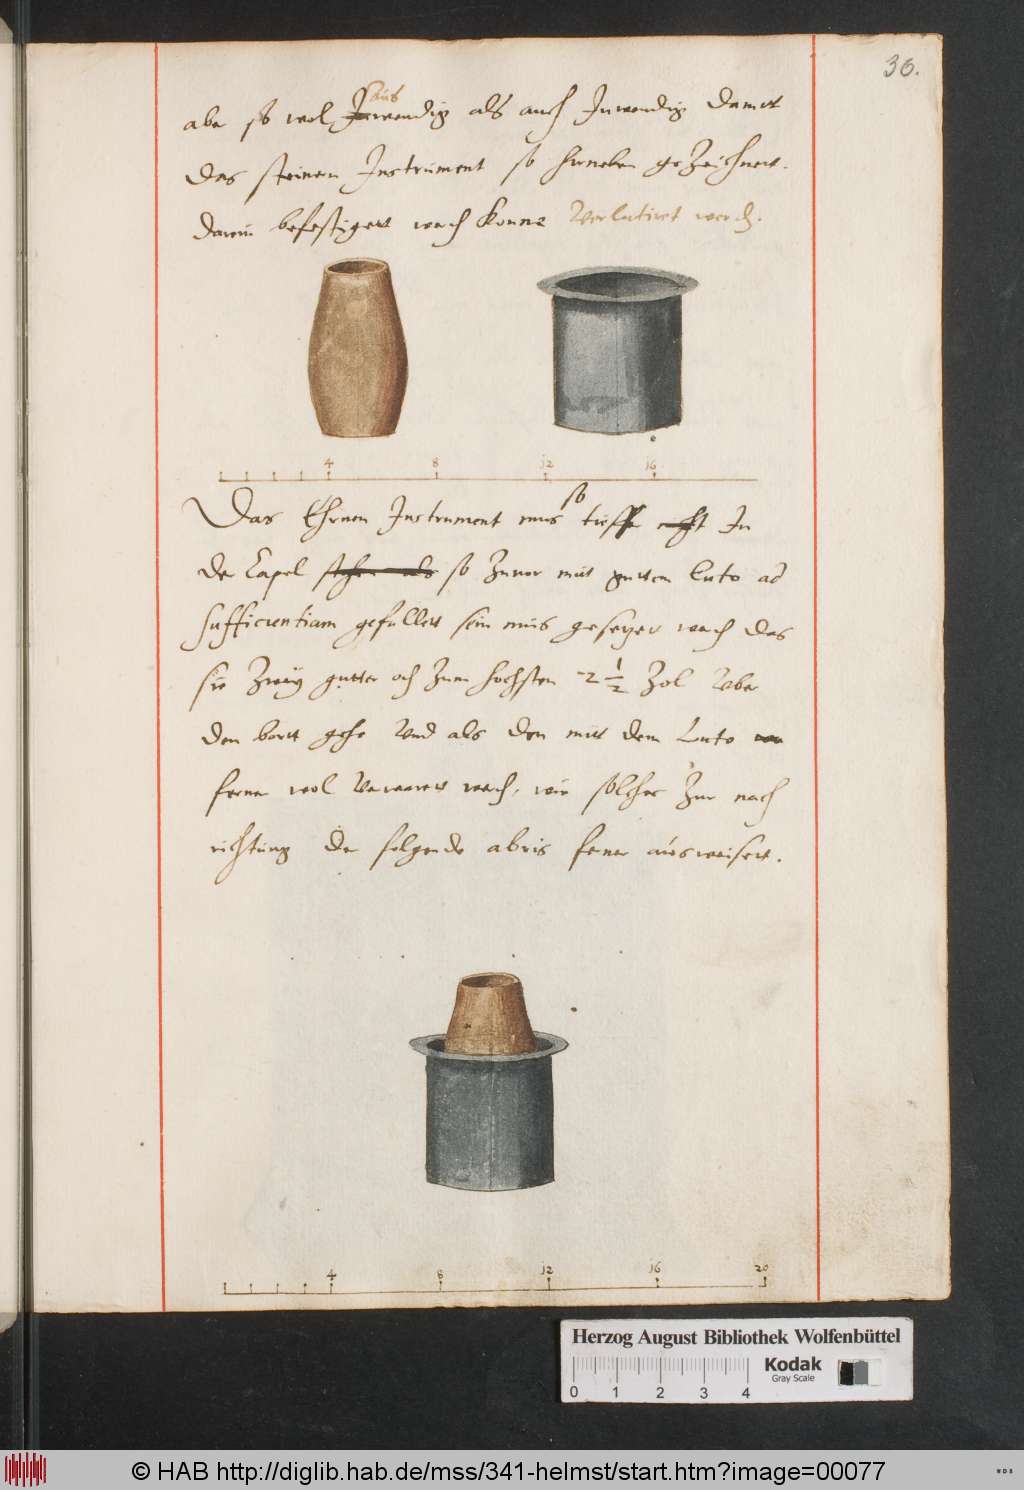 36.
aus
abe so wol Inwendig als auch Inwendig damit
das steinern Instrument so hirneben gezeichnett.
darein befestigett werden konne Verlutiret werden.
4 8 12 16
so
Das Instrument mus tieff nicht In
de Capel stehen als so zuuor mit guttem Luto ad
sufficientiam gefullett sein mus werden das
sie zum hochsten 2 1/2 Zol Uber
den bortt gehe Und als den mitt dem Luto
ferner wol Verwarett werden, wie solches zur nach
richtung de folgende abris ferner ausweisett.
4 8 12 16 20
Herzog August Bibliothek Wolfenbüttel
Kodak
Gray Scale
0 1 2 3 4
© HAB http://diglib.hab.de/mss/341-helmst/start.htm?image=00077